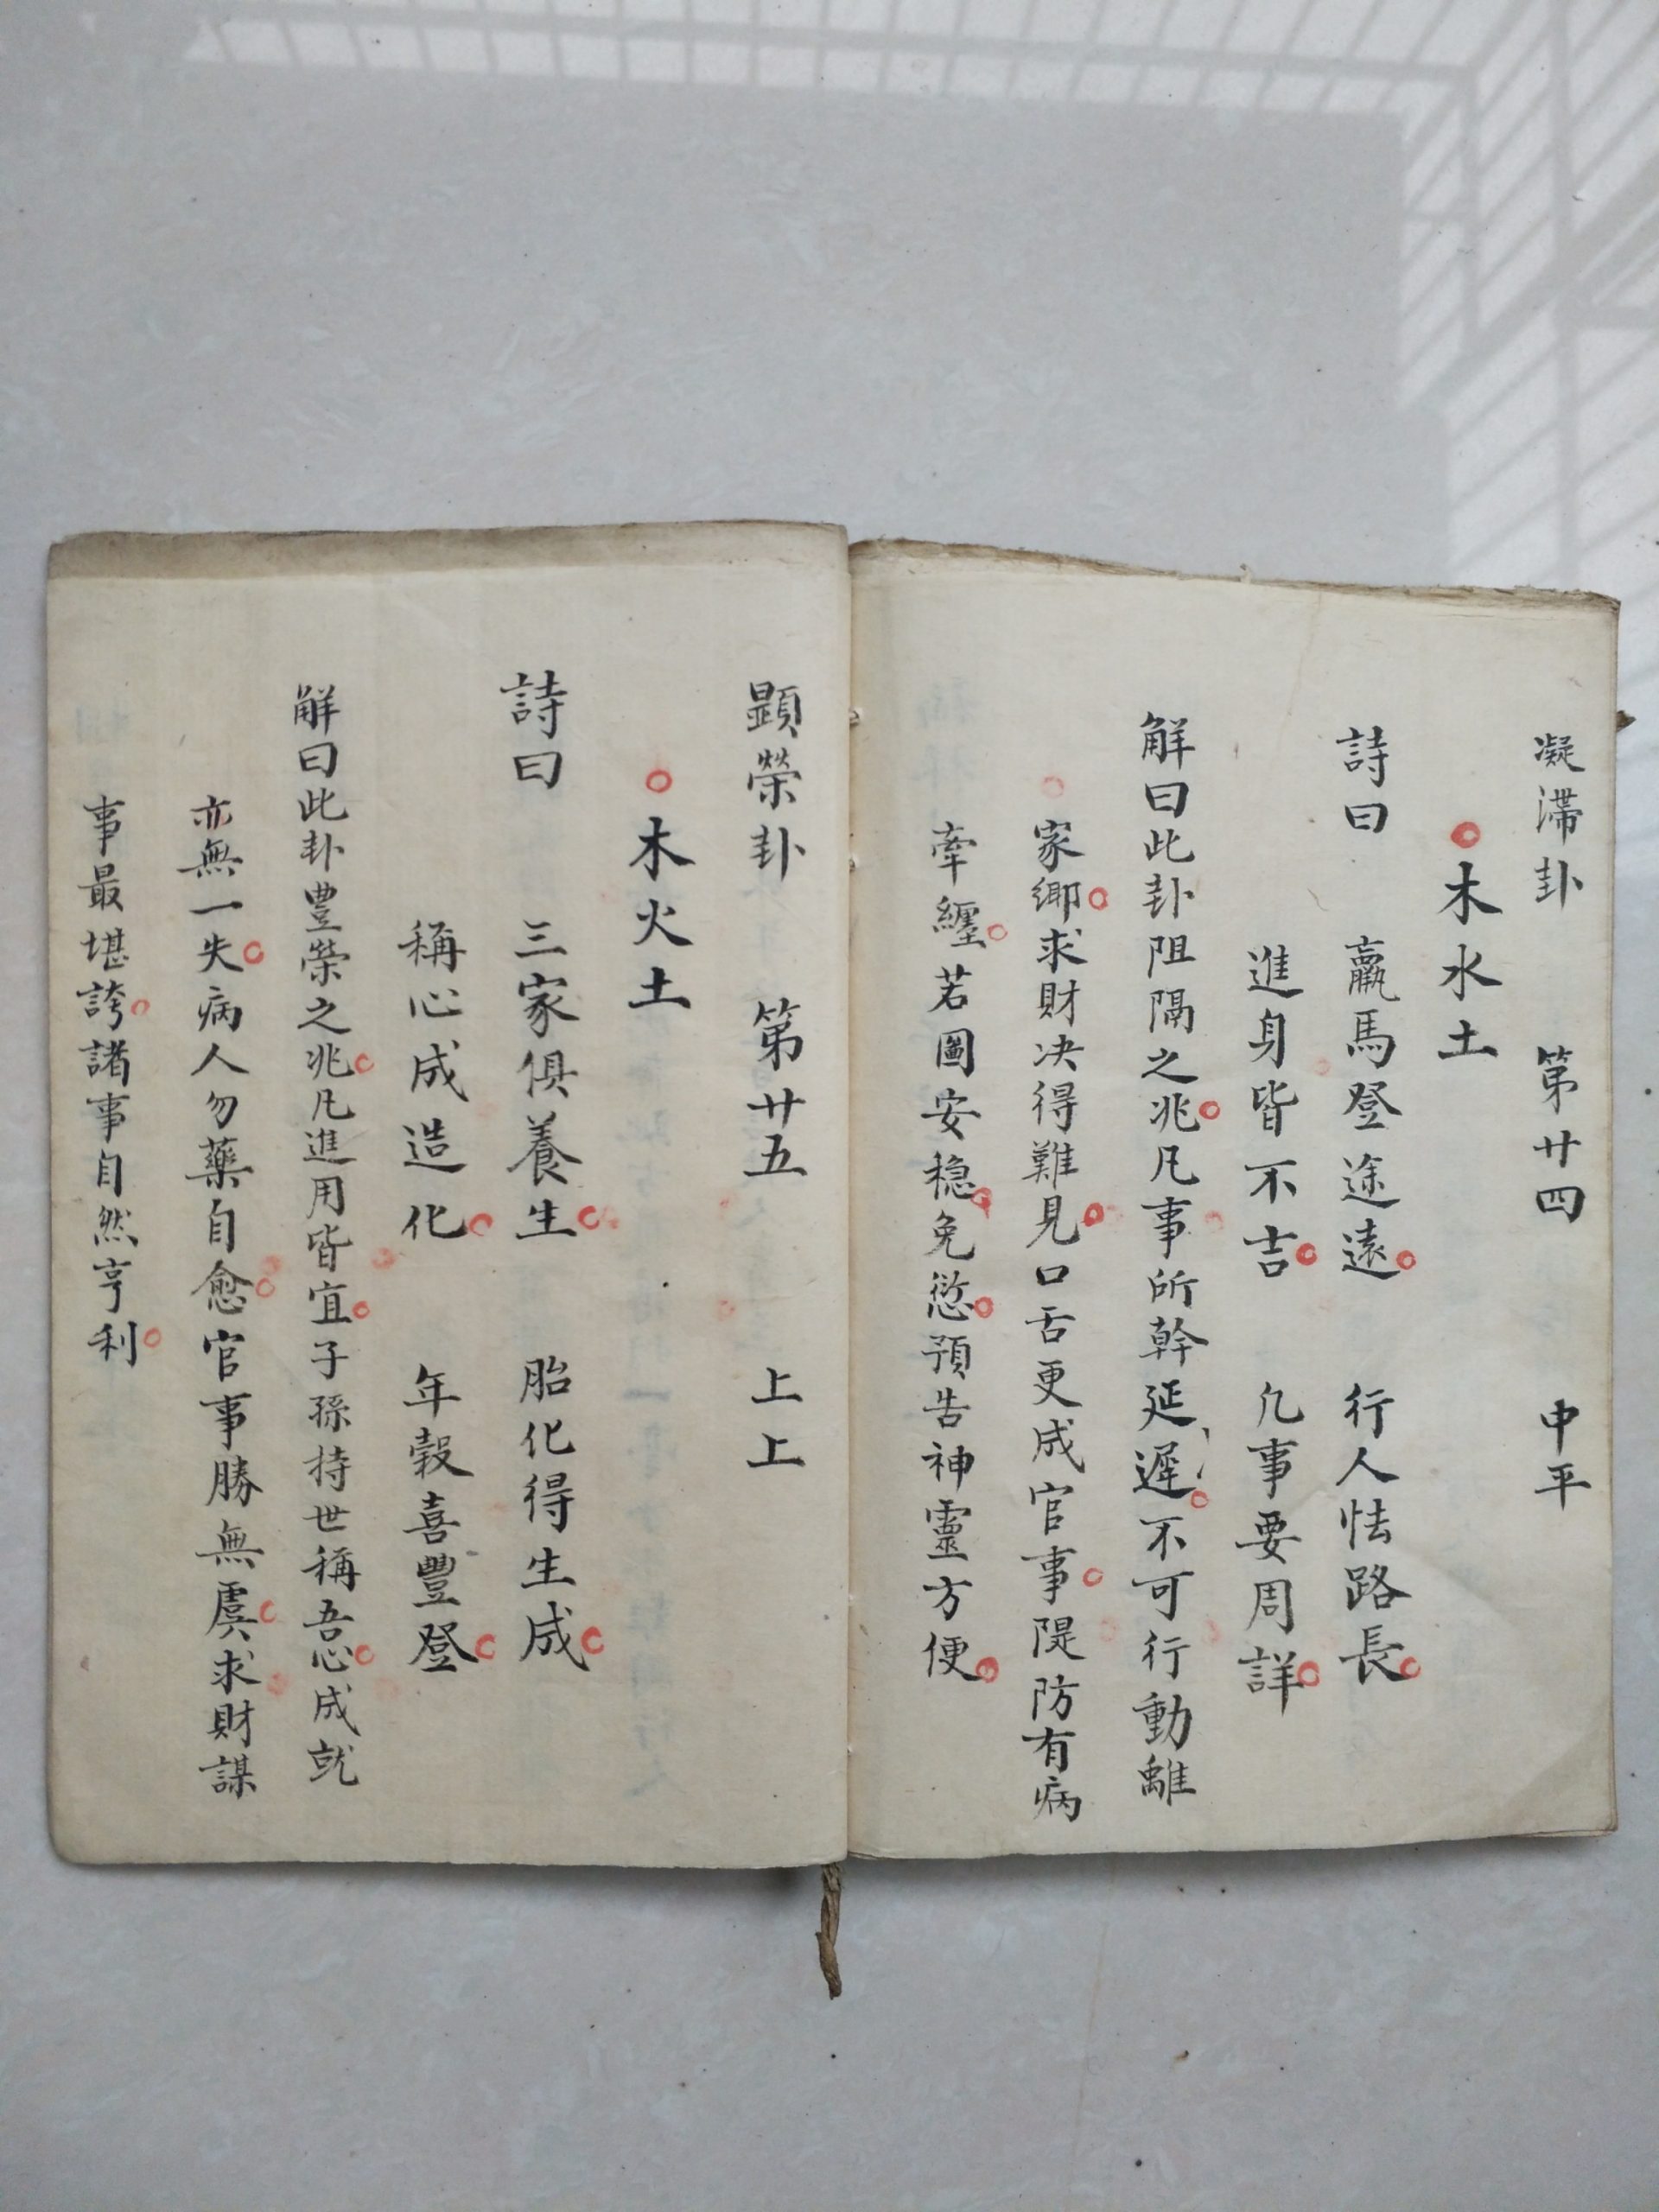 凝滯卦 第廿四 中平
木水土
詩曰 羸馬登途遠 行人怯路長
進身皆不吉 凢事要周詳
解曰此卦阻隔之兆凡事所幹延遲不可行動離
家鄉求財决得難見口舌更成官事隄防有病
牽纏若圖安穏免愆預告神靈方便
顕榮卦 第廿五 上上
木火土
詩曰 三家俱養生 胎化得生成
稱心成造化 年穀喜豐登
解曰此卦豊榮之兆凡進用皆宜子孫持世稱吾心成就
亦無一失病人勿藥自愈官事勝無虞求財謀
事最堪誇諸事自然亨利